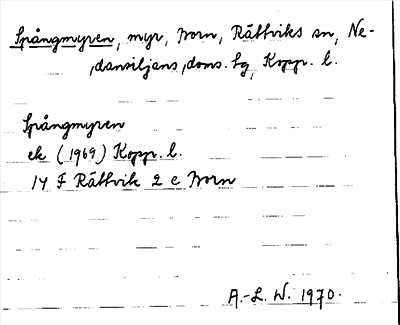 Spångmyren, myr, Born, Rättviks sn, Ne-
dansiljans doms. tg, Kopp. l.
Spångmyren
ek (1969) Kopp. l.
14 F Rättvik 2 c Born
A.-L. W. 1970.